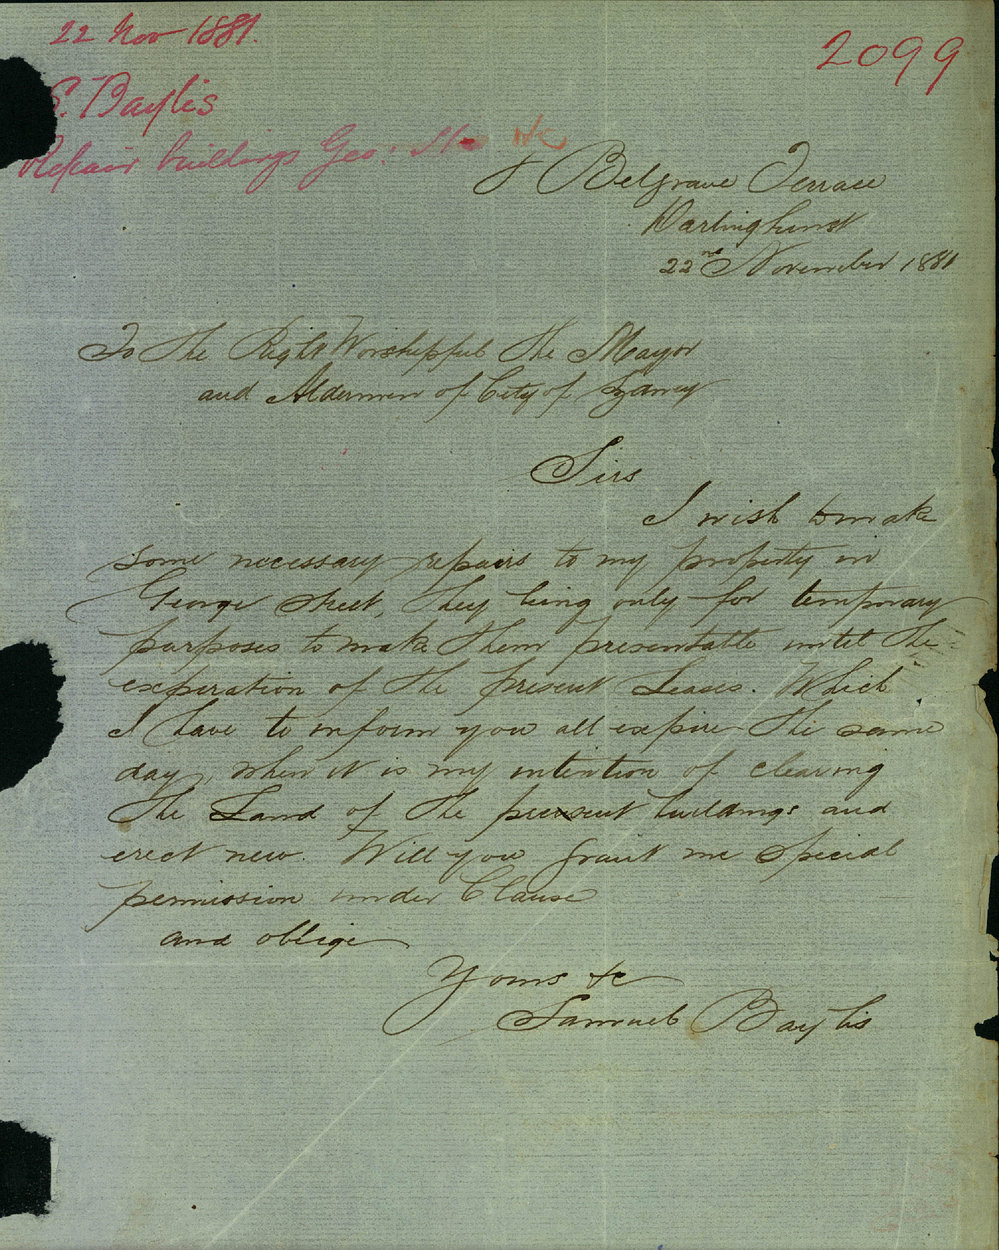 22 Nov 1881.
2099
S. Baylis
Repair buildings Geo: St
Belgrave Terrace
Darlinghurst
22nd November 1881
To the Right Worshepful the Mayor
and Aldermen of City of Sydney
Sirs
I wish to make
some necessary repairs to my property in
George Street, they being only for temporary
purposes to make them presentable until the
experation of the present Leases. Which
I have to inform you all expire the same
day, when it is my intention of clearing
the Land of the present buildings and
erect new. Will you grant me special
permission under Clause
and oblige
Yours &c
Samuel Baylis